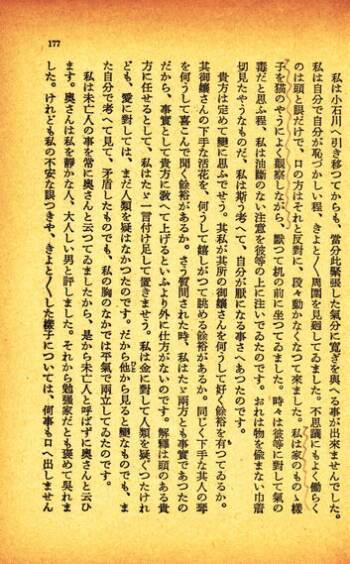 177
私は小石川へ引き移つてからも、當分此緊張した氣分に寛ぎを與へる事が出來ませんでした。
私は自分で自分が恥づかしい程、きよと〳〵周圍を見廻してゐました。不思議にもよく働らく
のは頭と眼だけで、口の方はそれと反對に、段々動かなくなつて來ました。私は家のものゝ樣
子を猫のやうによく觀察しながら、默つて机の前に坐つてゐました。時々は彼等に對して氣の
毒だと思ふ程、私は油斷のない注意を彼等の上に注いでゐたのです。おれは物を偸まない巾着
切見たやうなものだ、私は斯う考へて、自分が厭になる事さへあつたのです。
貴方は定めて變に思ふでせう。其私が其所の御孃さんを何うして好く餘裕を有つてゐるか。
其御孃さんの下手な活花を、何うして嬉しがつて眺める餘裕があるか。同じく下手な其人の琴
を何うして喜こんで聞く餘裕があるか。さう質問された時、私はたゞ兩方とも事實であつたの
だから、事實として貴方に敎へて上げるといふより外に仕方がないのです。解釋は頭のある貴
方に任せるとして、私はたゞ一言付け足して置きませう。私は金に對して人類を疑ぐつたけれ
ども、愛に對しては、まだ人類を疑はなかつたのです。だから他から見ると變なものでも、ま
た自分で考へて見て、矛盾したものでも、私の胸のなかでは平氣で兩立してゐたのです。
私は未亡人の事を常に奥さんと云つてゐましたから、是から未亡人と呼ばずに奥さんと云ひ
ます。奥さんは私を靜かな人、大人しい男と評しました。それから勉強家だとも褒めて呉れま
した。けれども私の不安な眼つきや、きよと〳〵した樣子については、何事も口へ出しません